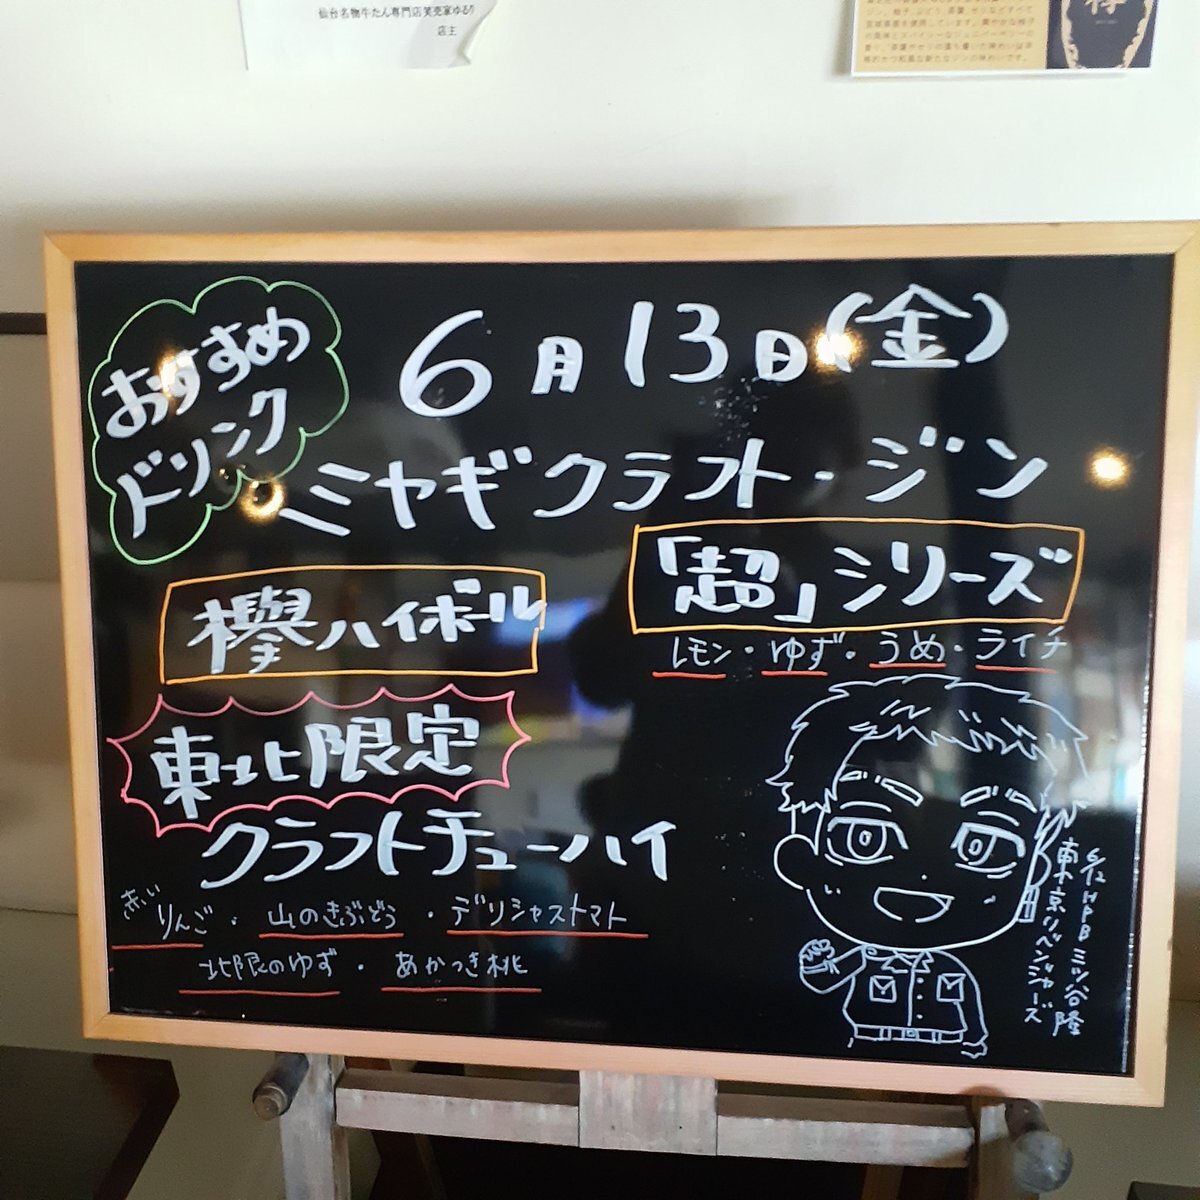 仙台名物牛たん専門店笑売家ゆるり
店主
おすすめ
ドリンク
6月13日(金)
ミヤギクラフト・ジン
欅ハイボール
「超」シリーズ
レモン・ゆず・うめ・ライチ
東北限定
クラフトチューハイ
きいりんご・山のきぶどう・デリシャストマト
北限のゆず・あかつき桃
6/12 HPB 三ツ谷隆
東京リベンジャーズ